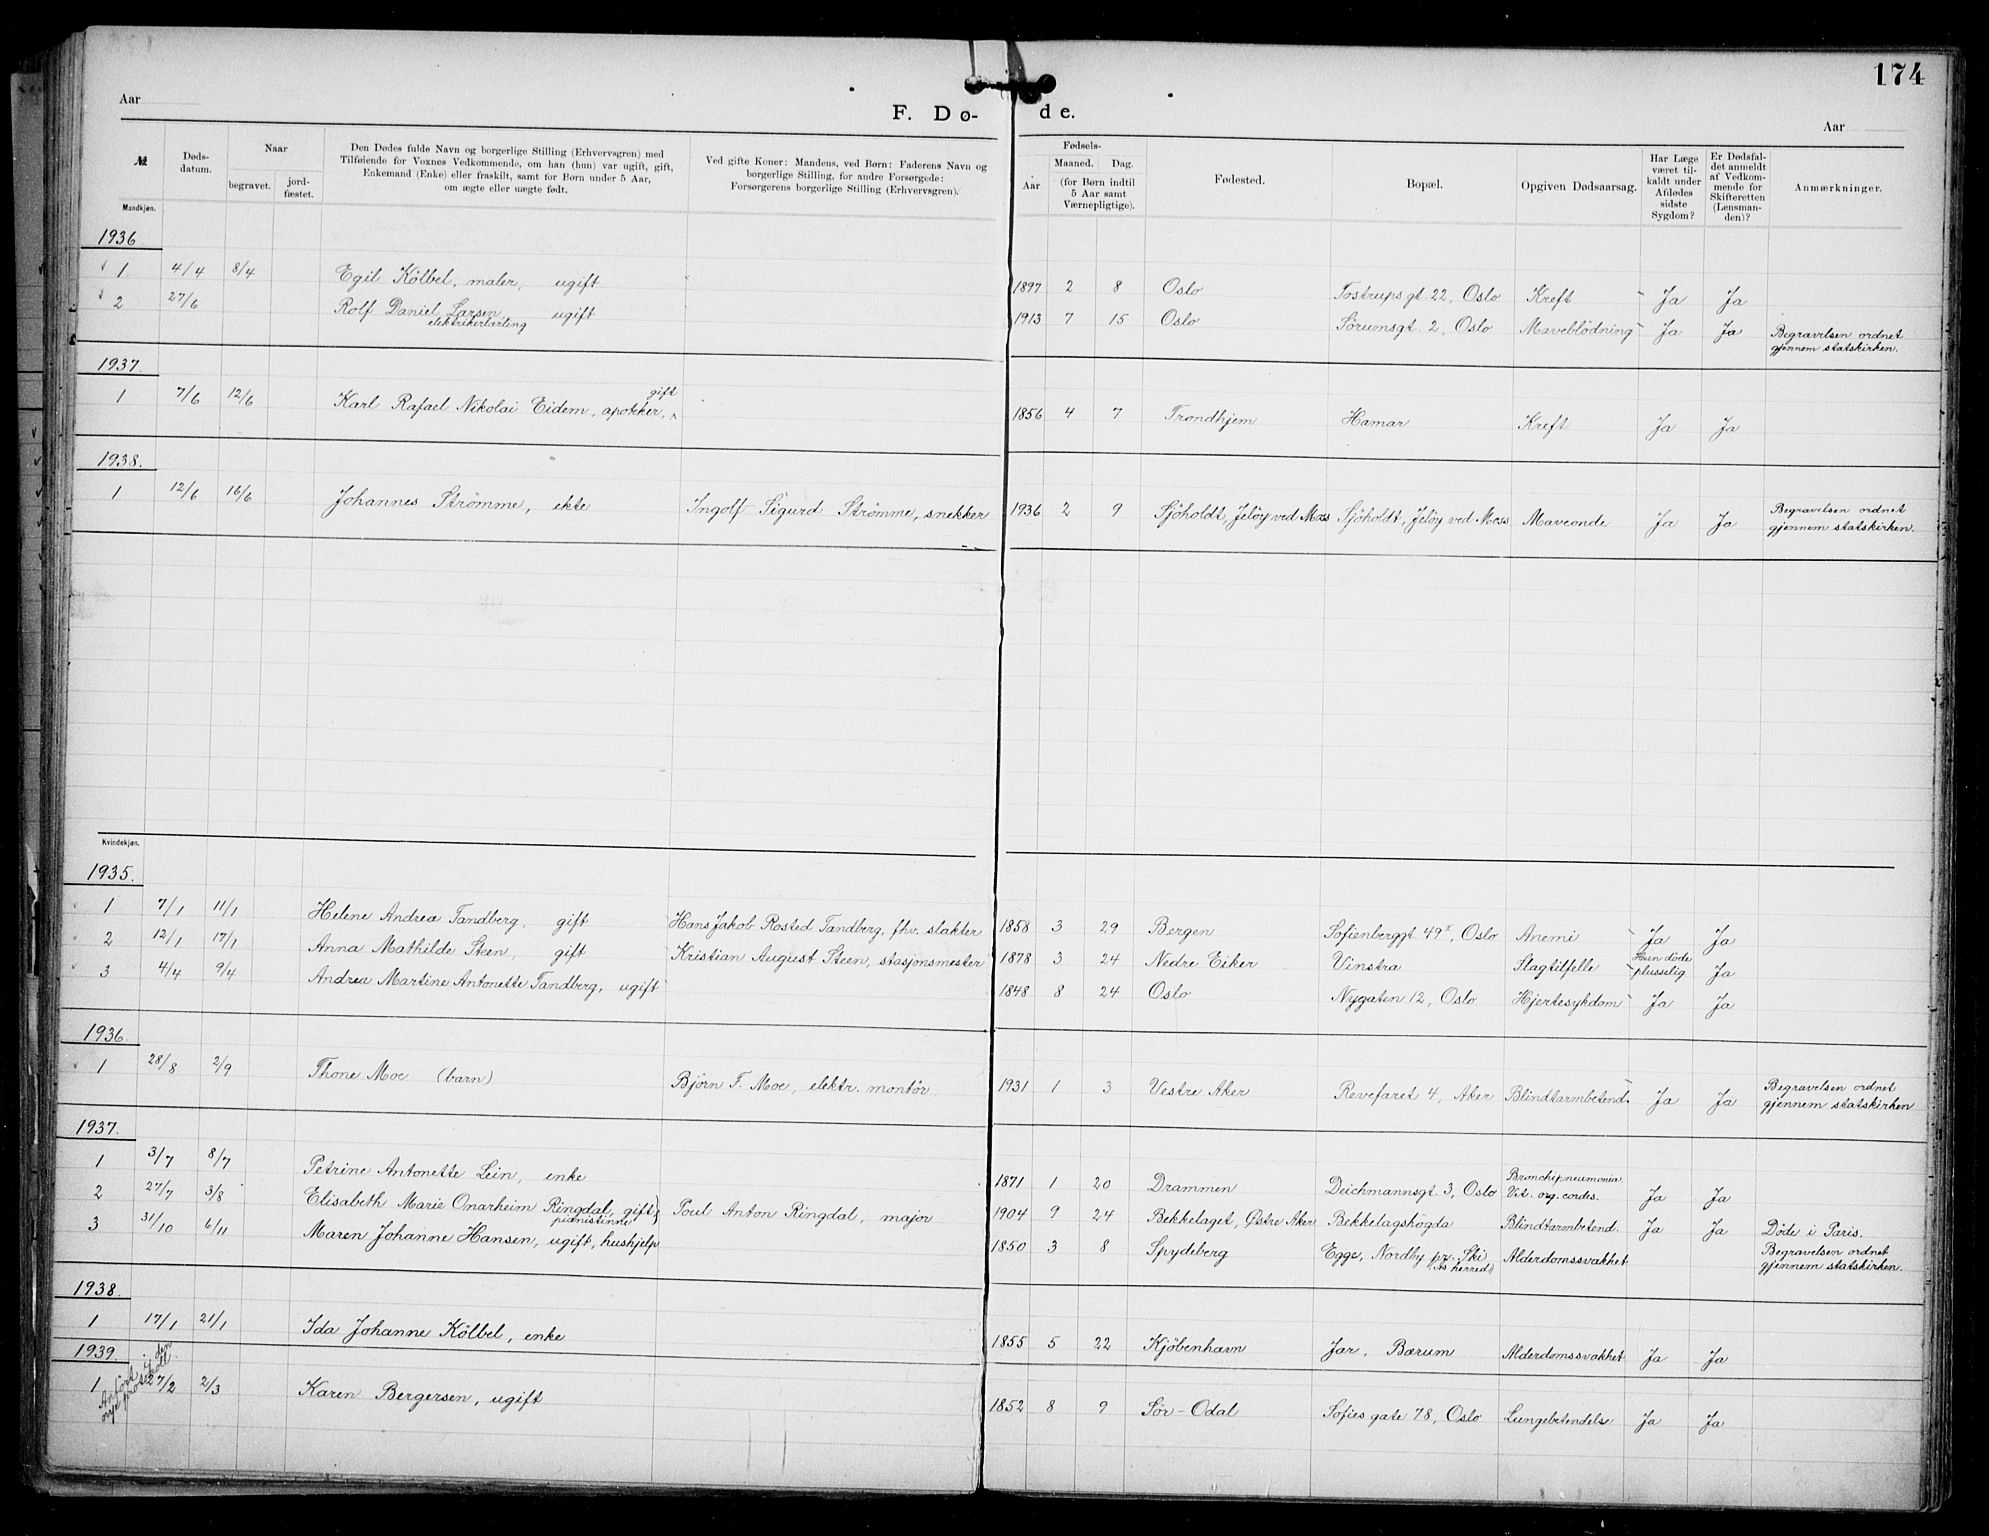 174
Aar
F. Dø-
de.
Aar
№
Døds-
datum.
Naar
begravet.
jord-
fæstet.
Den Dødes fulde Navn og borgerlige Stilling (Erhvervsgren) med
Tilføiende for Voxnes Vedkommende, om han (hun) var ugift, gift,
Enkemand (Enke) eller fraskilt, samt for Børn under 5 Aar,
om ægte eller uægte født.
Ved gifte Koner: Mandens, ved Børn: Faderens Navn og
borgerlige Stilling, for andre Forsørgede:
Forsørgerens borgerlige Stilling (Erhvervsgren).
Fødsels-
Aar
Maaned.
Dag.
(for Børn indtil
5 Aar samt
Værnepligtige).
Fødested.
Bopæl.
Opgiven Dødsaarsag.
Har Læge
været til-
kaldt under
Afdødes
sidste
Sygdom?
Er Dødsfal-
det anmeldt
af Vedkom-
mende for
Skifteretten
(Lensman-
den)?
Anmærkninger.
Mandkjøn.
1936
1. 4/4 8/4 Egil Kölbel, maler, ugift 1897 2 8 Oslo Tostrups gt. 22, Oslo Kreft Ja Ja
2 27/6 Rolf Daniel Larsen, ugift 1913 7 15 Oslo Sörumsgt. 2, Oslo Maveblödning Ja Ja Begravelsen ordnet
elektrikerlærling gjennem statskirken.
1937.
gift
1 7/6 12/6 Karl Rafael Nikolai Eidem, apoteker, 1856 4 7 Trondhjem Hamar Kreft Ja Ja
1938.
1 12/6 16/6 Johannes Strömme, ekte Ingolf Sigurd Strömme, snekker 1936 2 9 Sjöholdt, Jelöy ved Moss Sjöholdt, Jelöy ved Moss Maveonde Ja Ja Begravelsen ordnet
gjennem statskirken.
Kvindekjøn.
1935.
1 7/1 11/1 Helene Andrea Tandberg, gift Hans Jakob Rosted Tandberg, fhv. slakter 1858 3 29 Bergen Sofienberggt. 49 II, Oslo Anemi Ja Ja
2 12/1 17/1 Anna Mathilde Steen, gift Kristian August Steen, stasjonsmester 1878 3 24 Nedre Eiker Vinstra Slagtilfelle Hun döde
plusselig Ja
3 4/4 9/4 Andrea Martine Antonette Tandberg, ugift 1848 8 24 Oslo Nygaten 12, Oslo Hjertesykdom Ja Ja
1936.
1 28/8 2/9 Thone Moe (barn) Björn F. Moe, elektr. montör 1931 1 3 Vestre Aker Revefaret 4, Aker Blindtarmbetend. Ja Ja Begravelsen ordnet
gjennem statskirken
1937.
1 3/7 8/7 Petrine Antonette Lein, enke 1871 1 20 Drammen Deichmannsgt. 3, Oslo Bronchipneumonia.
Vit. org. cordis. Ja Ja
2 27/7 3/8 Elisabeth Marie Onarheim Ringdal, gift Poul Anton Ringdal, major 1904 9 24 Bekkelaget, Østre Aker Bekkelagshögda Blindtarmbetend. Ja Ja Döde i Paris.
pianistinne
3 31/10 6/11 Maren Johanne Hansen, ugift, hushjelp 1850 3 8 Spydeberg Egge, Nordby pr. Ski Alderdomssvakhet Begravelsen ordnet
(Ås herred) gjennem statskirken.
1938.
1 17/1 21/1 Ida Johanne Kölbel, enke 1855 5 22 Kjöbenhavn Jar, Bærum Alderdomssvakhet Ja Ja
1939.
1 27/2 2/3 Karen Bergersen, ugift 1852 8 9 Sör-Odal Sofies gate 78, Oslo Lungebetendelse Ja Ja
Anfört i den
nye protokoll.